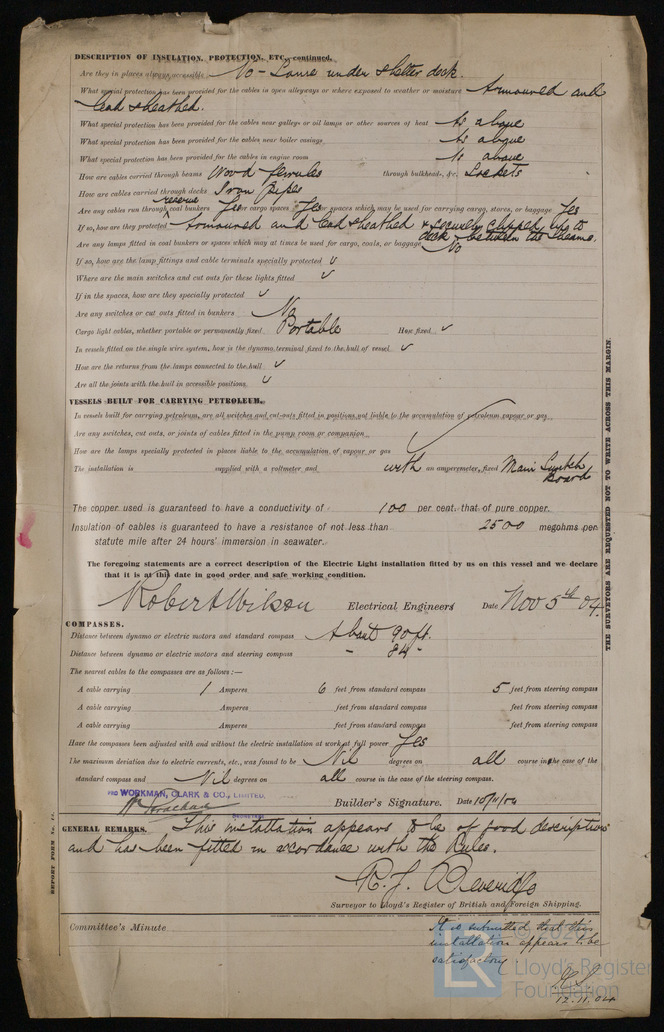 DESCRIPTION OF INSULATION, PROTECTION, ETC.—continued.
Are they in places always accessible No - Some under shelter deck.
What special protection has been provided for the cables in open alleyways or where exposed to weather or moisture Armoured and
lead sheathed.
What special protection has been provided for the cables near galleys or oil lamps or other sources of heat As above
What special protection has been provided for the cables near boiler casings As above
What special protection has been provided for the cables in engine room As above
How are cables carried through beams Wood ferrules through bulkheads, &c. Sockets
How are cables carried through decks Iron Pipes
reserve
Are any cables run through coal bunkers Yes or cargo spaces Yes or spaces which may be used for carrying cargo, stores, or baggage Yes
If so, how are they protected Armoured and lead sheathed & securely clipped up to
deck between the beams.
Are any lamps fitted in coal bunkers or spaces which may at times be used for cargo, coals, or baggage No
If so, how are the lamp fittings and cable terminals specially protected ✓
Where are the main switches and cut outs for these lights fitted ✓
If in the spaces, how are they specially protected ✓
Are any switches or cut outs fitted in bunkers No
Cargo light cables, whether portable or permanently fixed Portable How fixed ✓
In vessels fitted on the single wire system, how is the dynamo terminal fixed to the hull of vessel ✓
How are the returns from the lamps connected to the hull ✓
Are all the joints with the hull in accessible positions ✓
VESSELS BUILT FOR CARRYING PETROLEUM.
In vessels built for carrying petroleum, are all switches and cut-outs fitted in positions not liable to the accumulation of petroleum vapour or gas
Are any switches, cut outs, or joints of cables fitted in the pump room or companion
How are the lamps specially protected in places liable to the accumulation of vapour or gas
The installation is supplied with a voltmeter and with an amperemeter, fixed Main Switch
Board
The copper used is guaranteed to have a conductivity of 100 per cent. that of pure copper.
Insulation of cables is guaranteed to have a resistance of not less than 2500 megohms per
statute mile after 24 hours' immersion in seawater.
The foregoing statements are a correct description of the Electric Light installation fitted by us on this vessel and we declare
that it is at this date in good order and safe working condition.
Robert Wilson Electrical Engineers Date Nov 5th 04.
COMPASSES.
Distance between dynamo or electric motors and standard compass About 90 ft.
Distance between dynamo or electric motors and steering compass " 84 "
The nearest cables to the compasses are as follows :—
A cable carrying 1 Amperes 6 feet from standard compass 5 feet from steering compass
A cable carrying Amperes feet from standard compass feet from steering compass
A cable carrying Amperes feet from standard compass feet from steering compass
Have the compasses been adjusted with and without the electric installation at work at full power Yes
The maximum deviation due to electric currents, etc., was found to be Nil degrees on all course in the case of the
standard compass and Nil degrees on all course in the case of the steering compass.
PRO WORKMAN, CLARK & CO., LIMITED.
Builder's Signature. Date 10/11/04
GENERAL REMARKS. This installation appears to be of good description
and has been fitted in accordance with the Rules.
R. J. Beveridge
Surveyor to Lloyd's Register of British and Foreign Shipping.
Committee's Minute
It is submitted that this
installation appears to be
satisfactory.
12.11.04
THE SURVEYORS ARE REQUESTED NOT TO WRITE ACROSS THIS MARGIN.
LR
Lloyd's Register
Foundation